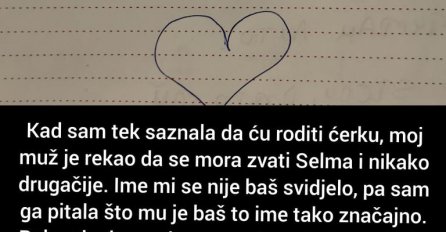 Kad sam tek saznala da ću roditi ćerku, moj
muž je rekao da se mora zvati Selma i nikako
drugačije. Ime mi se nije baš svidjelo, pa sam
ga pitala što mu je baš to ime tako značajno.